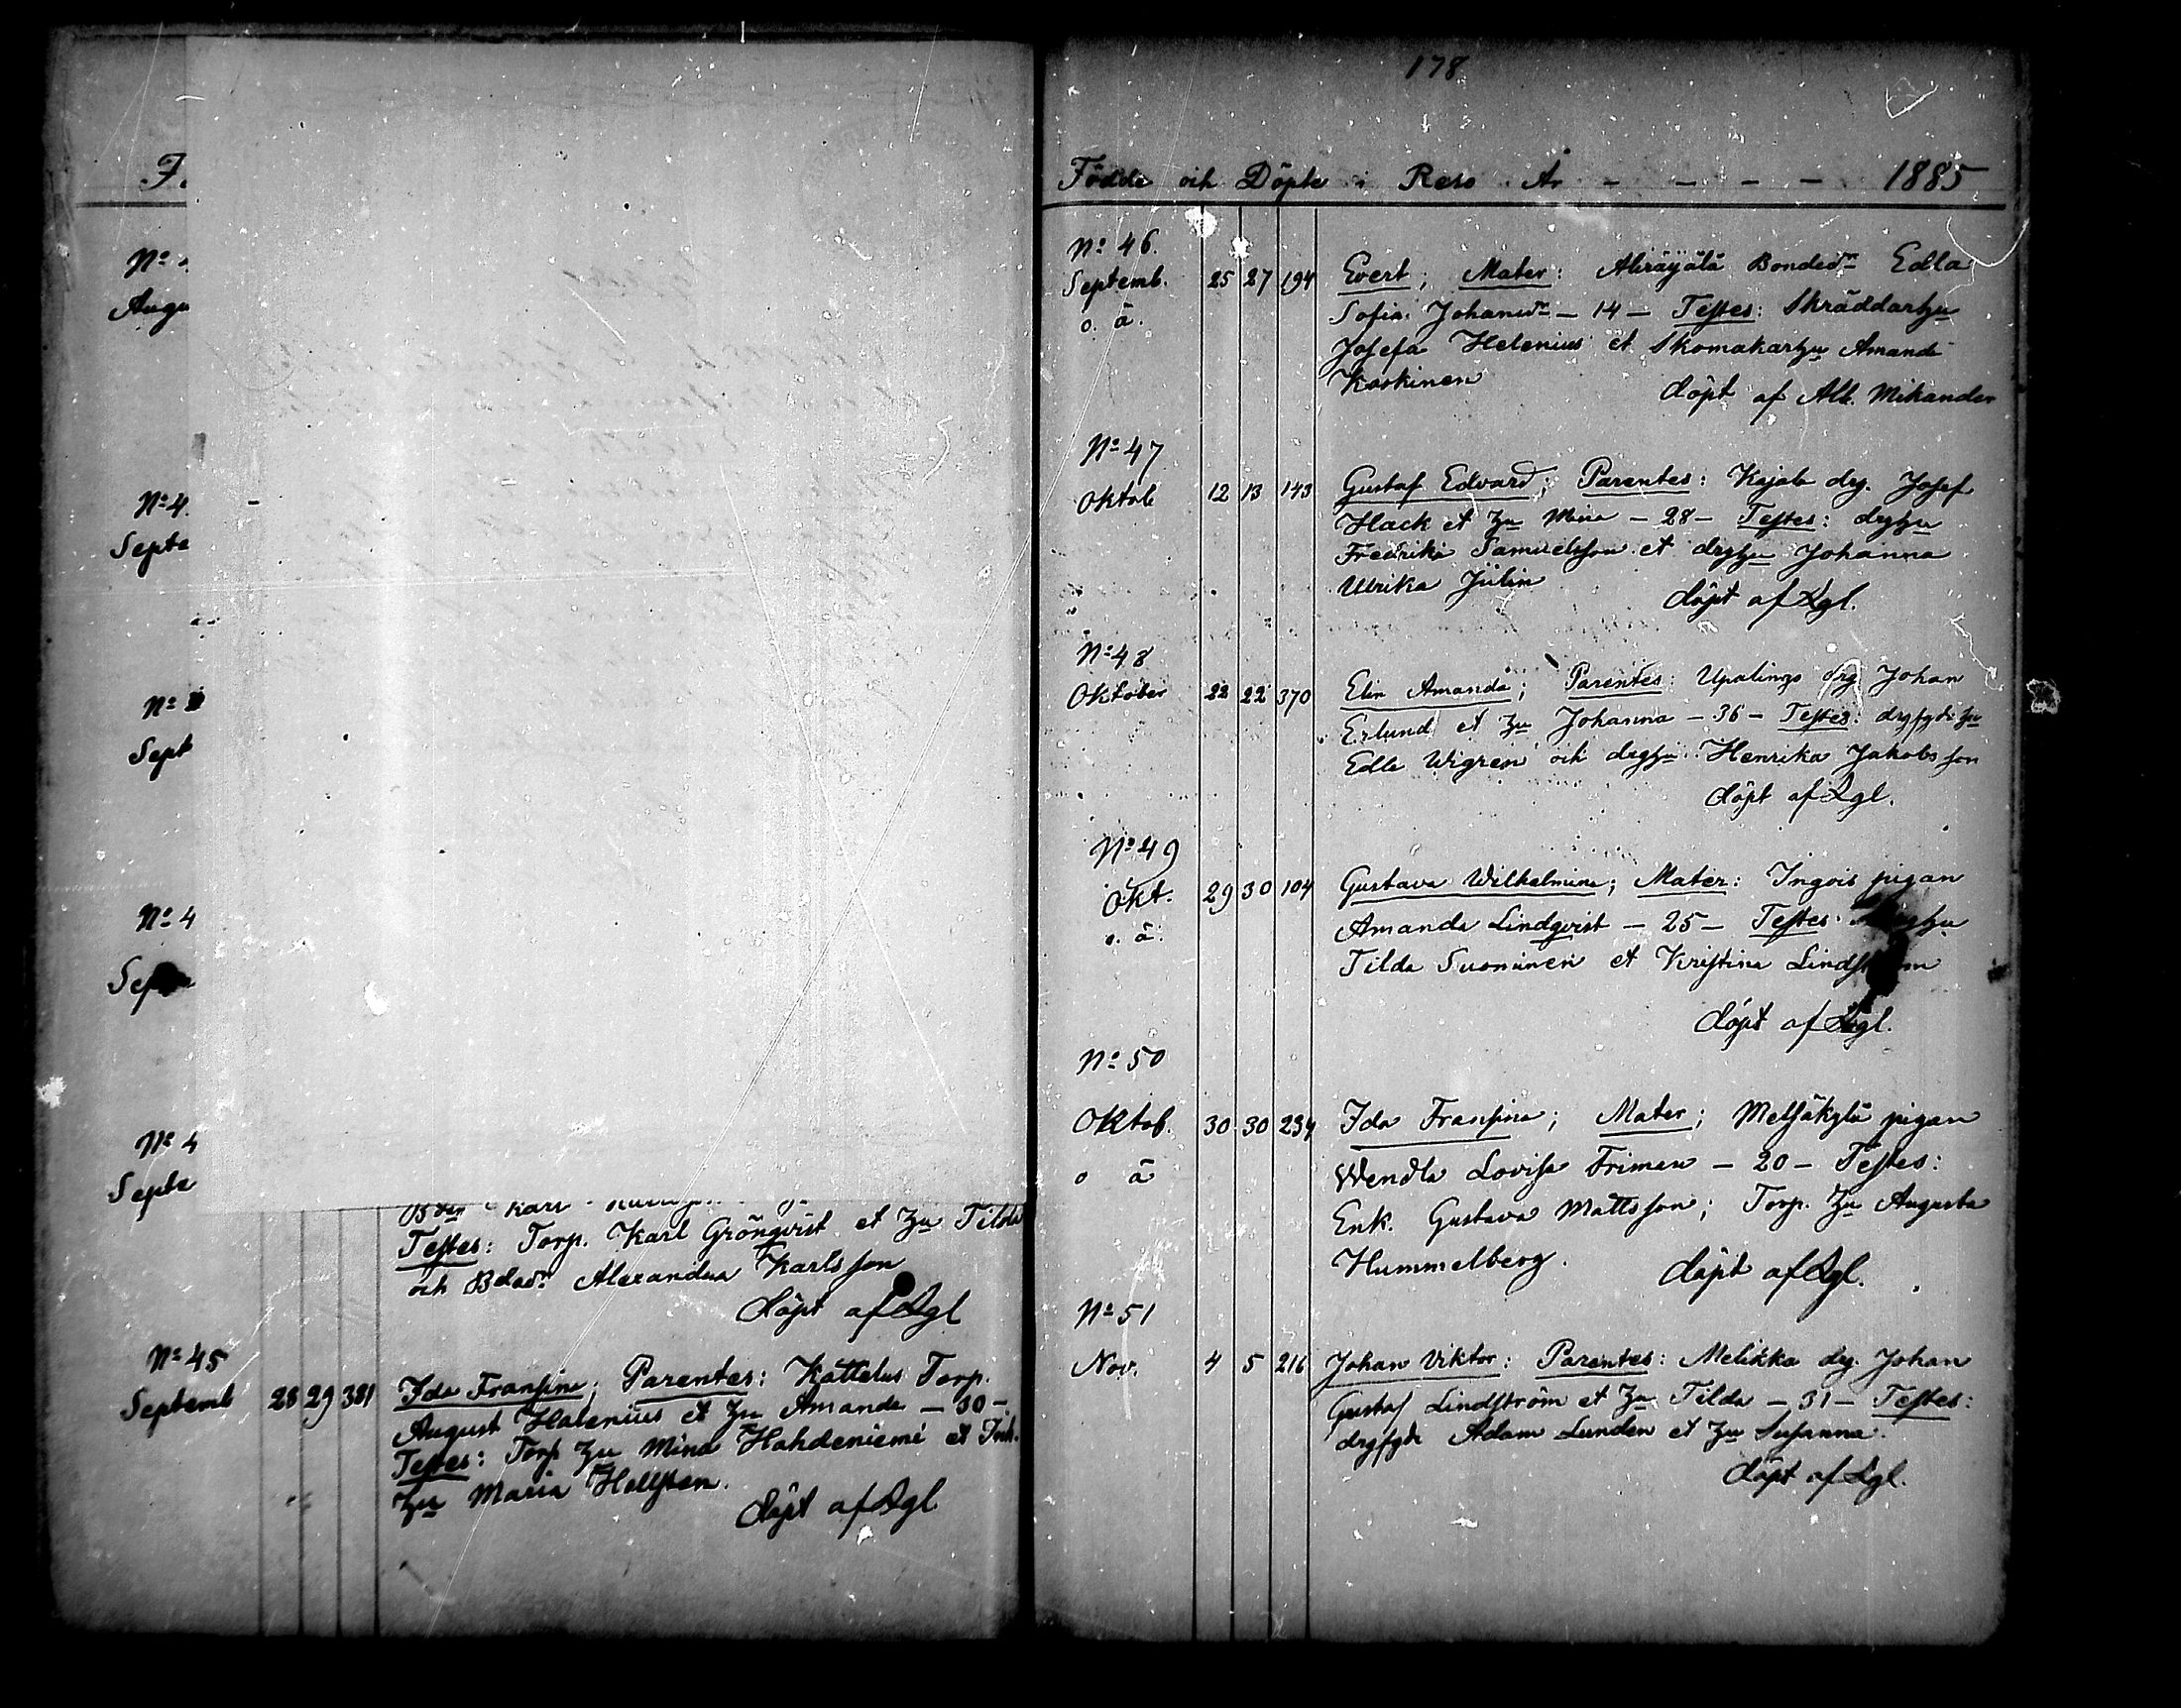 F.
No
Augu
No 4
Septe
No
Sept
No 4
Sep
No 4
Septe
Testes: Torp. Karl Grönqvist et Hu Tilda
och Bdadr Alexandra Karlsson
döpt af Lgl
No 45
Septemb 28 29 381 Ida Fransina; Parentes: Kattelus Torp.
August Halenius et Hu Amanda – 30 –
Testes: Torp Hu Mina Hahdeniemi et Inh.
Hu Maria Hellsten.
döpt af Lgl
178
Födde och Döpte i Reso År – – – – 1885
No 46.
Septemb. 25 27 194 Evert; Mater: Bondedr Edla
o. ä. Sofia Johansdr – 14 – Testes: Skräddarhu
Josefa Helenius et Skomakarhu Amanda
Koskinen döpt af Alb. Mikander
No 47
Oktob 12 13 143 Gustaf Edvard; Parentes: Kajala drg. Josef
Hack et Hu Mina – 28 – Testes: drghu
Fredrika Samuelsson et drghu Johanna
Ulrika Julin döpt af Lgl.
No 48
Oktober 22 22 370 Elin Amanda; Parentes: Upalingo drg Johan
Erlund et Hu Johanna – 36 – Testes: drgfgde hu
Edla Wigren och drghu Henrika Jakobsson
döpt af Lgl.
No 49
Okt. 29 30 104 Gustava Wilhelmina; Mater: Ingois pigan
o. ä. Amanda Lindqvist – 25 – Testes:
Tilda Suominen et Kristina Lindström
döpt af Lgl.
No 50
Oktob. 30 30 234 Ida Fransina; Mater; Metsäkylä pigan
o ä Wendla Lovisa Friman – 20 – Testes:
Enk. Gustava Mattsson; Torp. Hu Augusta
Hummelberg. döpt af Lgl.
No 51
Nov. 4 5 216 Johan Viktor: Parentes: Melikka drg. Johan
Gustaf Lindström et Hu Tilda – 31 – Testes:
drgfgde Adam Lunden et Hu Susanna.
döpt af Lgl.